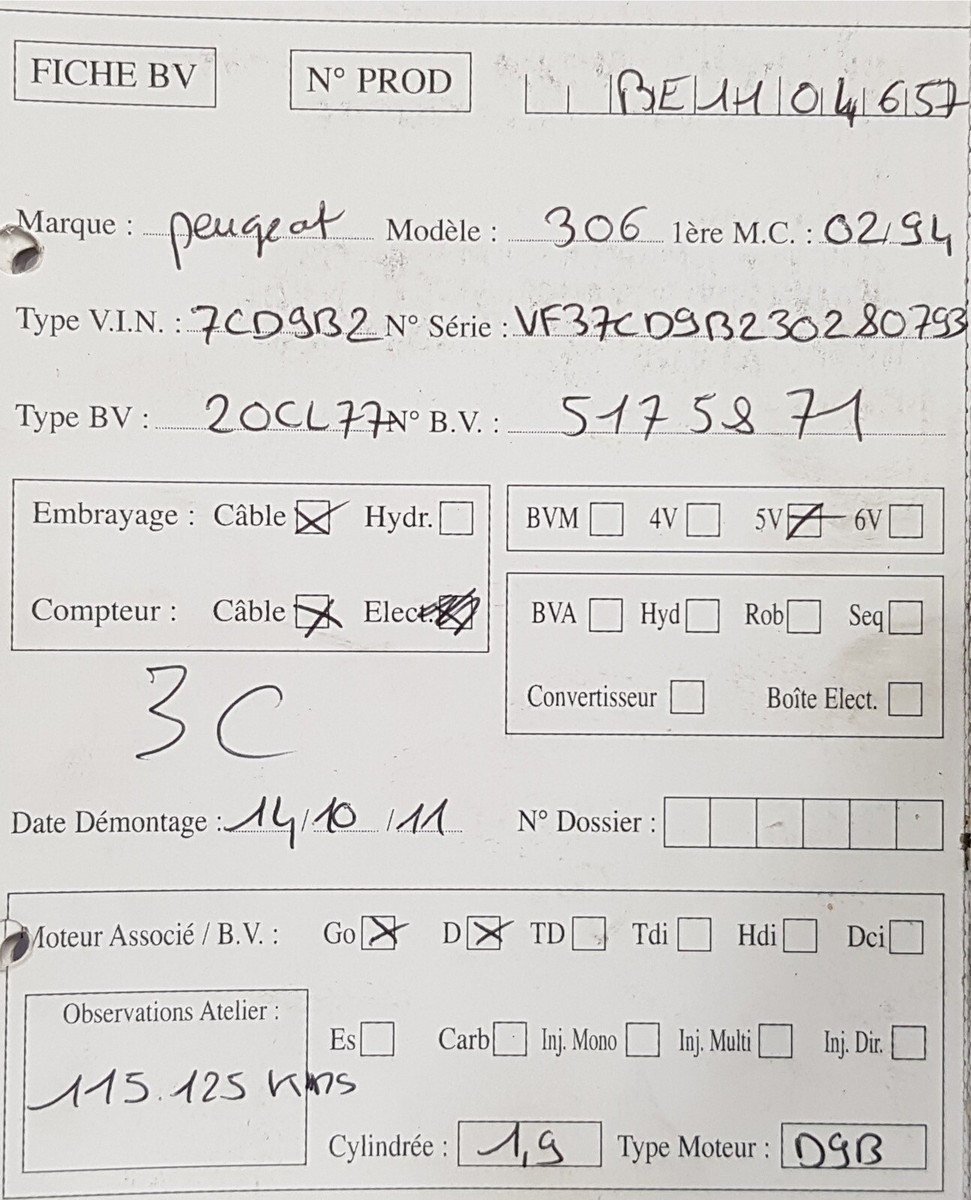 FICHE BV N° PROD BE1H04657
Marque : peugeot Modèle : 306 1ère M.C. : 02/94
Type V.I.N. : 7CD9B2 N° Série : VF37CD9B230280793
Type BV : 20CL77 N° B.V. : 5175871
Embrayage : Câble Hydr. BVM 4V 5V 6V
Compteur : Câble Elect. BVA Hyd Rob Seq
Convertisseur Boîte Elect.
3C
Date Démontage : 14/10/11 N° Dossier :
Moteur Associé / B.V. : Go D TD Tdi Hdi Dci
Observations Atelier :
Es Carb Inj. Mono Inj. Multi Inj. Dir.
115.125 Kms
Cylindrée : 1,9 Type Moteur : D9B